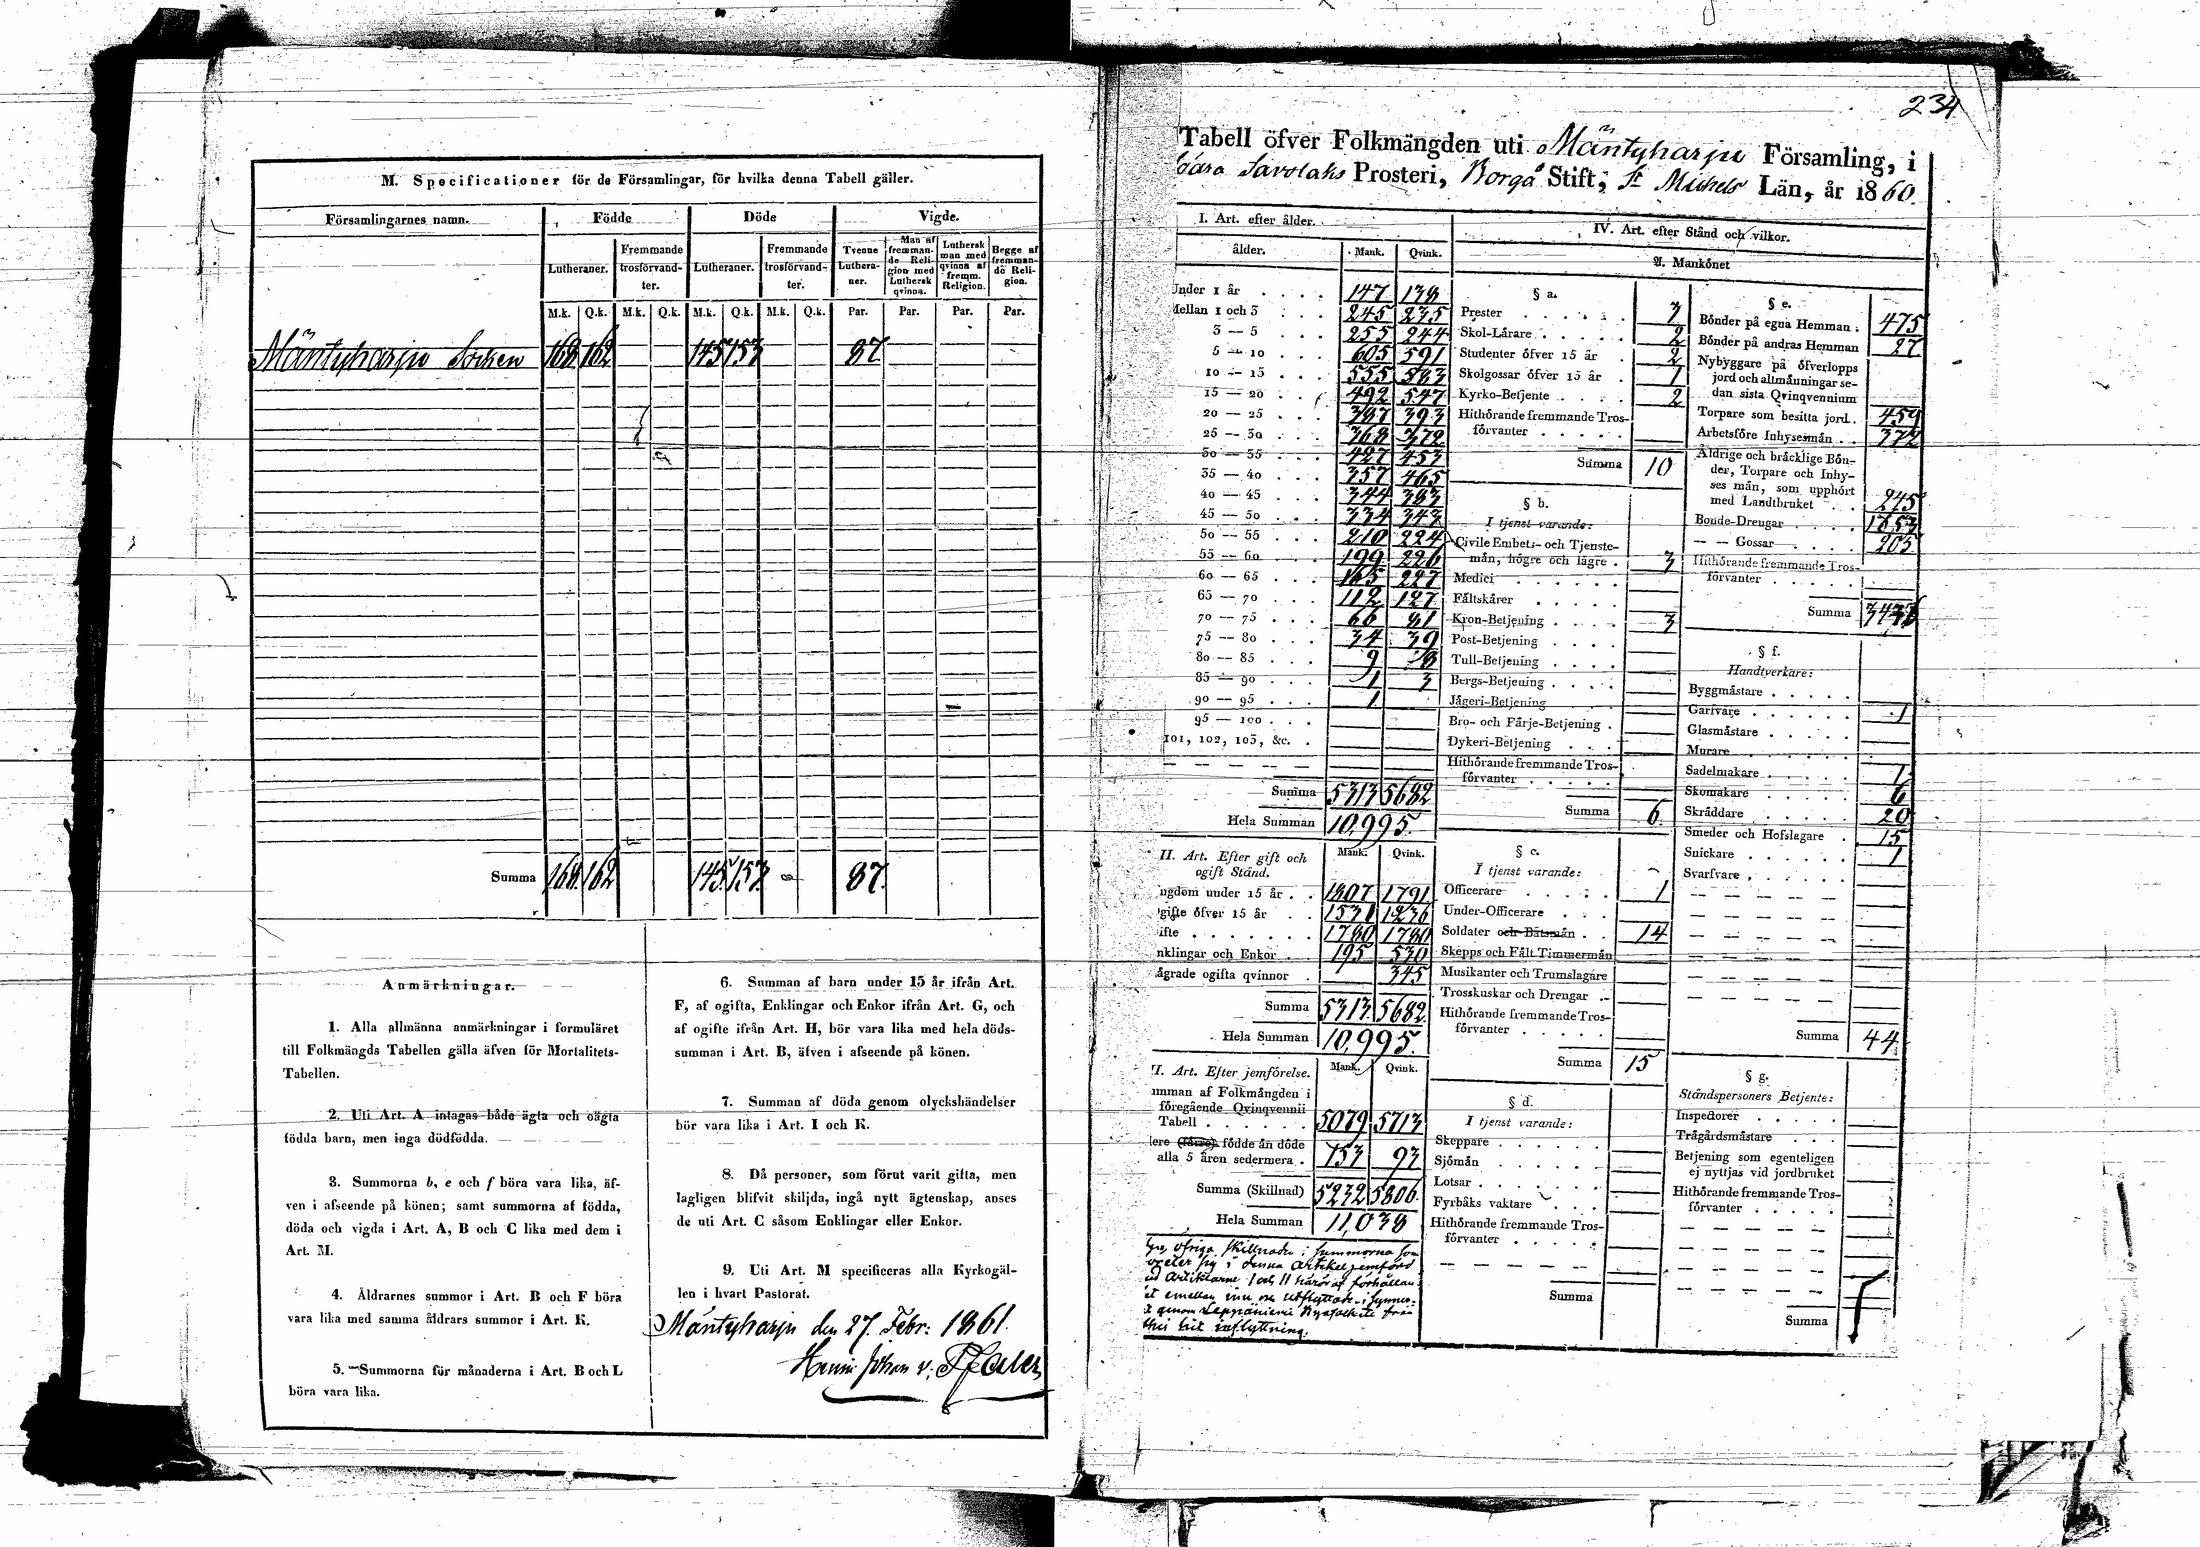 M. Specificationer för de Församlingar, för hvilka denna Tabell gäller.
Församlingarnes namn. Födde Döde Vigde.
Lutheraner. Fremmande trosförvandter. Lutheraner. Fremmande trosförvandter. Tvenne Lutheraner. Man af fremmande Religion med Luthersk qvinna. Luthersk man med qvinna af fremm. Religion. Begge af fremmande Religion.
M.k. Q.k. M.k. Q.k. M.k. Q.k. M.k. Q.k. Par. Par. Par. Par.
Mäntyharju Socken 168 162 145 153 87
Summa 168 162 145 153 87
Anmärkningar.
1. Alla allmänna anmärkningar i formuläret
till Folkmängds Tabellen gälla äfven för Mortalitets-
Tabellen.
2. Uti Art. A intagas både ägta och oägta
födda barn, men inga dödfödda.
3. Summorna b, e och f böra vara lika, äf-
ven i afseende på könen; samt summorna af födda,
döda och vigda i Art. A, B och C lika med dem i
Art. M.
4. Åldrarnes summor i Art. B och F böra
vara lika med samma åldrars summor i Art. K.
5. Summorna för månaderna i Art. B och L
böra vara lika.
6. Summan af barn under 15 år ifrån Art.
F, af ogifta, Enklingar och Enkor ifrån Art. G, och
af ogifte ifrån Art. H, bör vara lika med hela döds-
summan i Art. B, äfven i afseende på könen.
7. Summan af döda genom olyckshändelser
bör vara lika i Art. I och K.
8. Då personer, som förut varit gifta, men
lagligen blifvit skiljda, ingå nytt ägtenskap, anses
de uti Art. C såsom Enklingar eller Enkor.
9. Uti Art. M specificeras alla Kyrkogäl-
len i hvart Pastorat.
Mäntyharju den 27. Febr: 1861.
234
Tabell öfver Folkmängden uti Mäntyharju Församling, i
Savolaks Prosteri, Borgå Stift, St Michels Län, år 1860.
I. Art. efter ålder.
ålder. Mank. Qvink.
Under 1 år 147 138
Mellan 1 och 3 245 235
3 — 5 255 244
5 — 10 605 591
10 — 15 555 583
15 — 20 492 547
20 — 25 387 393
25 — 30 368 372
30 — 35 427 453
35 — 40 357 465
40 — 45 344 383
45 — 50 334 343
50 — 55 210 224
55 — 60 199 226
60 — 65 165 227
65 — 70 112 127
70 — 75 66 81
75 — 80 34 39
80 — 85 9
85 — 90 1 3
90 — 95 1
95 — 100
101, 102, 103, &c.
Summa 5313 5682
Hela Summan 10,995.
II. Art. Efter gift och
ogift Stånd. Mank. Qvink.
ngdom under 15 år 1807 1791
gifte öfver 15 år 1531 1236
ifte 1780 1780
nklingar och Enkor 195 530
ägrade ogifta qvinnor 345
Summa 5313 5682
Hela Summan 10,995.
II. Art. Efter jemförelse. Mank. Qvink.
umman af Folkmängden i
föregående Qvinqvennii
Tabell 5079 5713
lere födde än döde
alla 5 åren sedermera 153 93
Summa (Skillnad) 5232 5806.
Hela Summan 11,038
IV. Art. efter Stånd och vilkor.
A. Mankönet
§ a.
Prester 3
Skol-Lärare 2
Studenter öfver 15 år 2
Skolgossar öfver 15 år 1
Kyrko-Betjente 2
Hithörande fremmande Tros-
förvanter
Summa 10
§ b.
I tjenst varande:
Civile Embets- och Tjenste-
män, högre och lägre 3
Medici
Fältskärer
Kron-Betjening 3
Post-Betjening
Tull-Betjening
Bergs-Betjening
Jägeri-Betjening
Bro- och Färje-Betjening
Dykeri-Betjening
Hithörande fremmande Tros-
förvanter
Summa 6
§ c.
I tjenst varande:
Officerare 1
Under-Officerare
Soldater och Båtsmän 14
Skepps och Fält Timmermän
Musikanter och Trumslagare
Trosskuskar och Drengar
Hithörande fremmande Tros-
förvanter
Summa 15
§ d.
I tjenst varande:
Skeppare
Sjömän
Lotsar
Fyrbåks vaktare
Hithörande fremmande Tros-
förvanter
Summa
§ e.
Bönder på egna Hemman 475
Bönder på andras Hemman 27
Nybyggare på öfverlopps
jord och allmänningar se-
dan sista Qvinqvennium
Torpare som besitta jord 459
Arbetsföre Inhysesmän 372
Åldrige och bräcklige Bön-
der, Torpare och Inhy-
ses män, som upphört
med Landtbruket
Bonde-Drengar
— — Gossar 205
Hithörande fremmande Tros-
förvanter
Summa
§ f.
Handtverkare:
Byggmästare
Garfvare 1
Glasmästare
Murare
Sadelmakare 1
Skomakare 6
Skräddare 20
Smeder och Hofslagare 15
Snickare 1
Svarfvare
Summa 44
§ g.
Ståndspersoners Betjente:
Inspectorer
Trägårdsmästare
Betjening som egenteligen
ej nyttjas vid jordbruket
Hithörande fremmande Tros-
förvanter
Summa